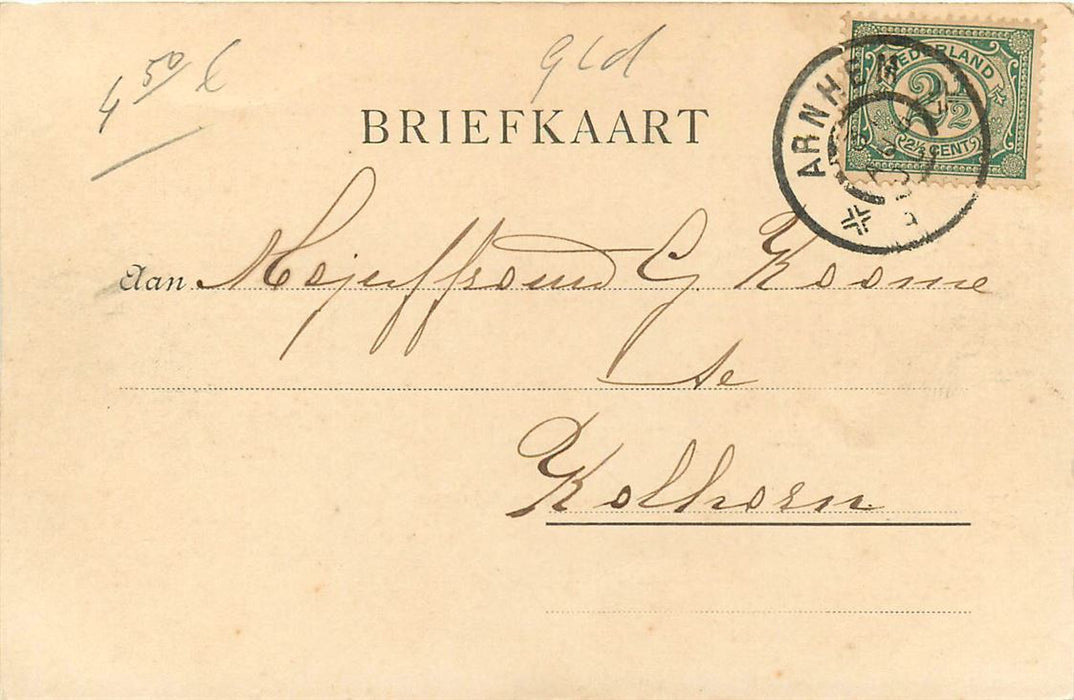 4 50 L
Gld
BRIEFKAART
NEDERLAND
2½
(2½ CENT)
ARNHEM
Aan Mejuffrouw G Koome
te
Kolhorn